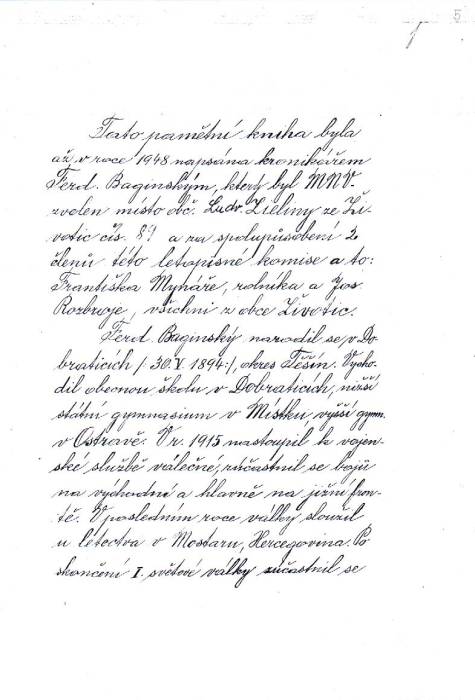 5
Tato pamětní kniha byla
až v roce 1948 napsána kronikářem
Ferd. Baginským, který byl MNV.
zvolen místo obč. Ludv. Zieliny ze Ži-
votic čís. 89 a za spolupůsobení 2
členů této letopisné komise a to:
Františka Mynáře, rolníka a Jos.
Rozbroje, všichni z obce Životic.
Ferd. Baginský narodil se v Do-
braticích /30.V. 1894:/, okres Těšín. Vycho-
dil obecnou školu v Dobraticích, nižší
státní gymnasium v Místku, vyšší gymn.
v Ostravě. V r. 1915 nastoupil k vojen-
ské službě válečné, zúčastnil se bojů
na východní a hlavně na jižní fron-
tě. V posledním roce války sloužil
u letectva v Mostaru, Hercegovina. Po
skončení I. světové války zúčastnil se